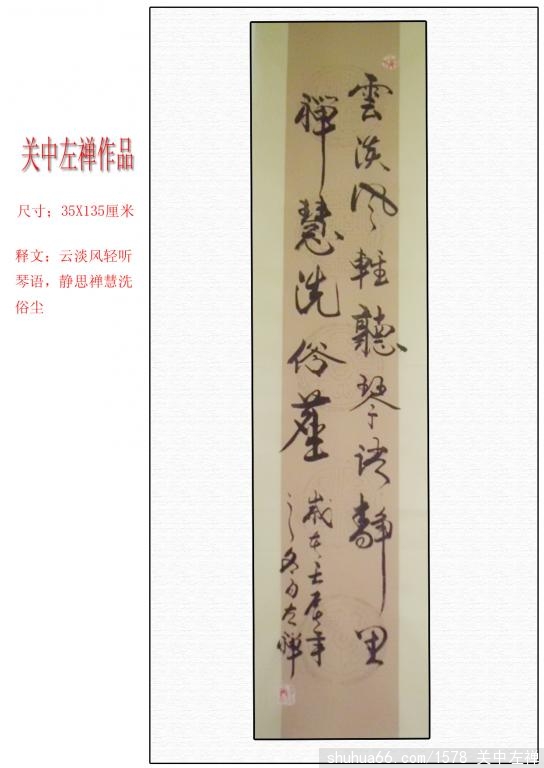 关中左禅作品
尺寸；35X135厘米
释文；云淡风轻听
琴语，静思禅慧洗
俗尘
雲淡风輕聽琴语静里
禅慧洗俗塵
歲在壬辰年
之冬月左禅
shuhua66.com/1578 关中左禅